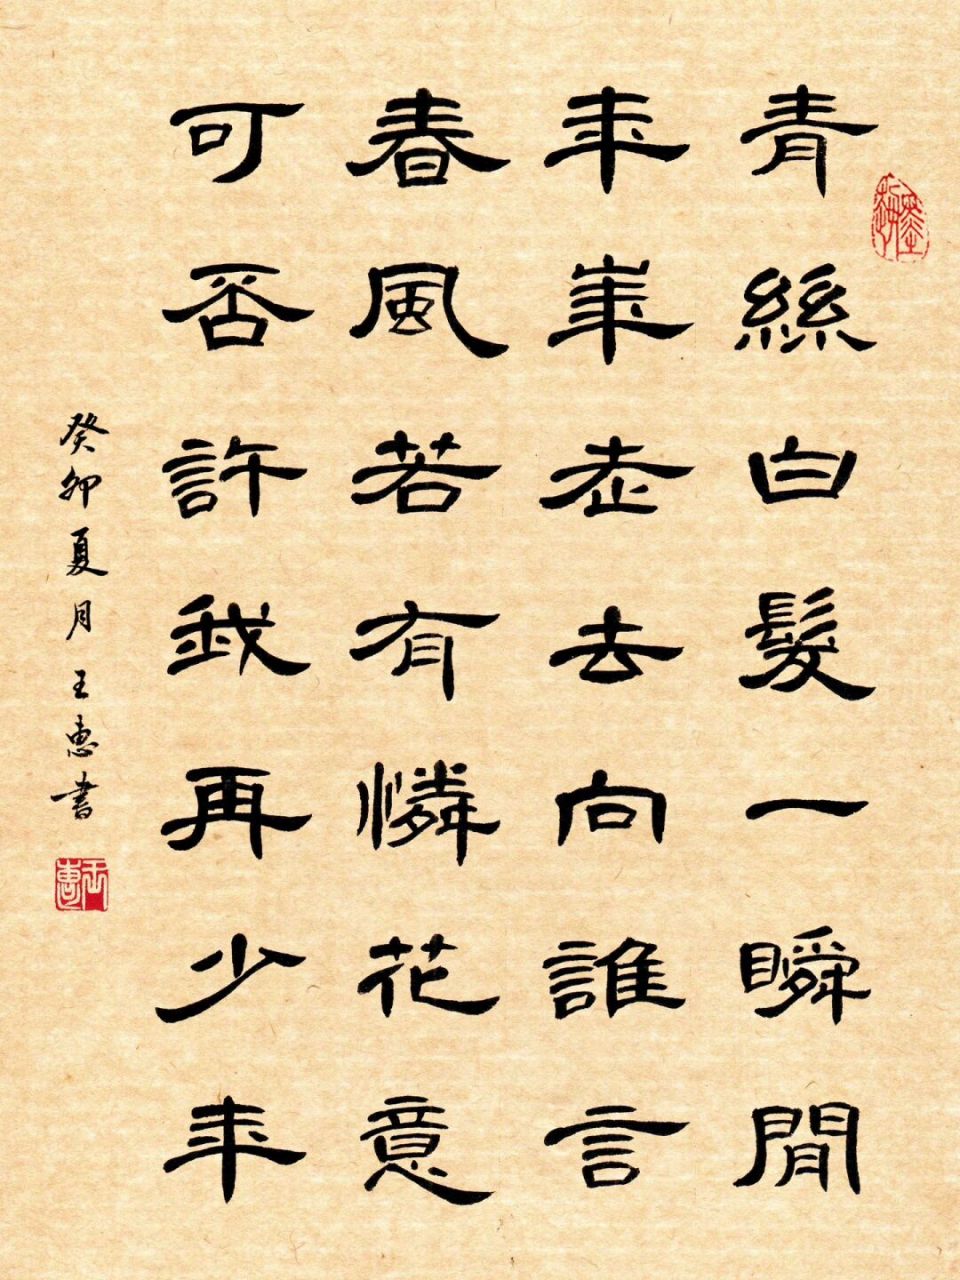 青絲白髮一瞬閒
年華老去向誰言
春風若有憐花意
可否許我再少年
癸卯夏月王惠書
王惠